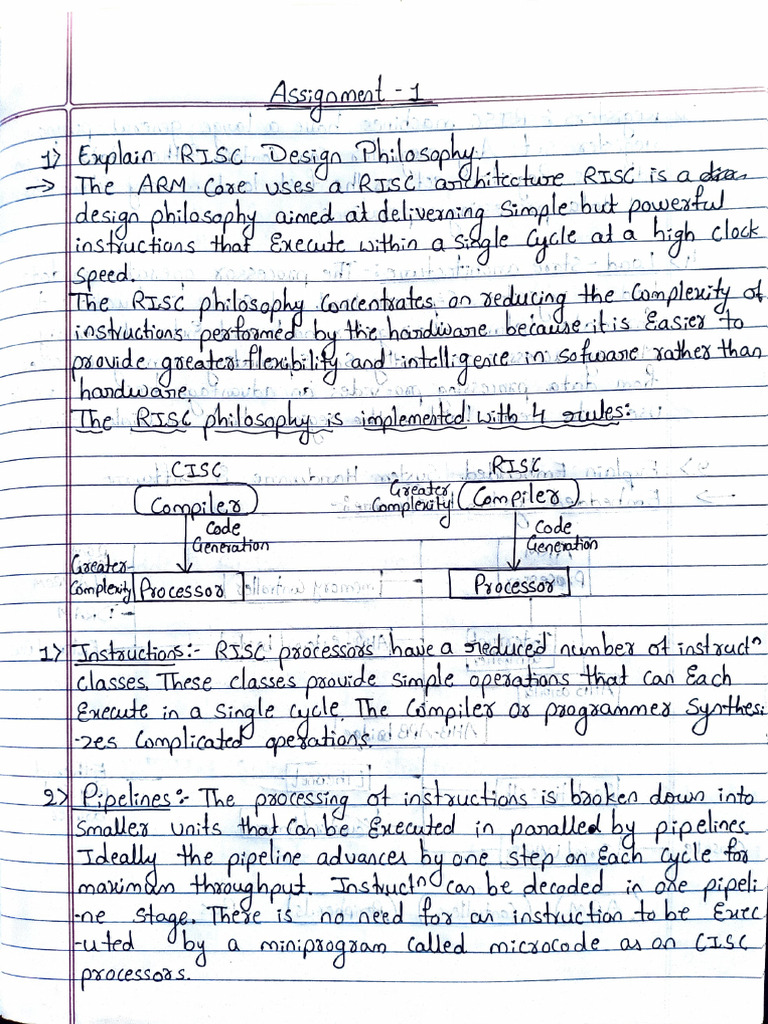 Assignment - 1
1) Explain RISC Design Philosophy.
→ The ARM Core uses a RISC architecture RISC is a
design philosophy aimed at delivering Simple but powerful
instructions that Execute within a single Cycle at a high clock
speed.
The RISC philosophy Concentrates on reducing the Complexity of
instructions performed by the hardware because it is Easier to
provide greater flexibility and intelligence in sofware rather than
hardware
The RISC philosophy is implemented with 4 rules:
CISC RISC
Compiler Greater Complexity Compiler
Code Code
Generation Generation
Greater
Complexity Processor Processor
1) Instructions:- RISC processors have a reduced number of instructn
classes. These classes provide simple operations that can Each
Execute in a single cycle. The Compiler or programmer Synthesi
-zes Complicated operations.
2) Pipelines:- The processing of instructions is broken down into
Smaller units that can be Executed in paralled by pipelines.
Ideally the pipeline advances by one step on Each Cycle for
maximum throughput. Instructn can be decoded in one pipeli
-ne stage. There is no need for an instruction to be Exec
-uted by a miniprogram called microcode as on CISC
processors.